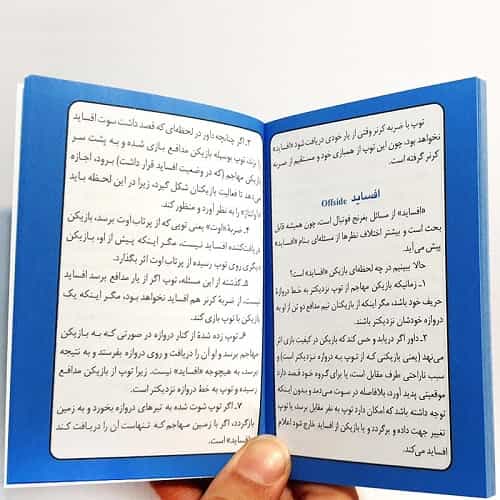 توپ با ضربه کرنر وقتی از یار خودی دریافت شود «افساید»
نخواهد بود، چون این توپ از همبازی خود و مستقیم از ضربه
کرنر گرفته است.
افساید Offside
«افساید» از مسائل بغرنج فوتبال است چون همیشه قابل
بحث است و بیشتر اختلاف نظرها از مسئله‌ای بنام «افساید»
پیش می‌آید.
حالا ببینیم در چه لحظه‌ای بازیکن «افساید» است؟
۱ـ زمانیکه بازیکن مهاجم از توپ نزدیکتر به خط دروازهٔ
حریف خود باشد، مگر اینکه از بازیکنان تیم مدافع دو تن از او به
دروازه خودشان نزدیکتر باشند.
۲ـ داور اگر دریابد و حس کند که بازیکن در کیفیت بازی اثر
می‌نهد (یعنی بازیکنی که از توپ به دروازه نزدیکتر است) و
سبب ناراحتی طرف مقابل است، یا برای گروه خود قصد دارد
موقعیتی پدید آورد، بلافاصله در سوت می‌دمد و بدون اینکه
توجه داشته باشد که امکان دارد توپ به نفر مقابل برسد، یا توپ
تغییر جهت داده و برگردد و یا بازیکن از افساید خارج شود اعلام
افساید می‌کند.
۳ـ اگر چنانچه داور در لحظه‌ای که قصد داشت سوت افساید
را بزند توپ بوسیله بازیکن مدافع بازی شده و به پشت سر
بازیکن مهاجم (که در وضعیت افساید قرار داشت) برود، اجازه
می‌دهد تا فعالیت بازیکنان شکل گیرد، زیرا در این لحظه باید
«آوانتاژ» را به نظر آورد و منظور کند.
۴ـ ضربهٔ «اوت» یعنی توپی که از پرتاب اوت برسد، بازیکن
دریافت‌کننده افساید نیست، مگر اینکه پیش از او، بازیکن
دیگری روی توپ رسیده از پرتاب اوت اثر بگذارد.
۵ـ گذشته از این مسئله، توپ اگر از یار مدافع برسد افساید
نیست. از ضربهٔ کرنر هم افساید نخواهد بود، مگر اینکه یک
بازیکن با توپ بازی کند.
۶ـ توپ زده شده از کنار دروازه در صورتی که به بازیکن
مهاجم برسد و او آن را دریافت و روی دروازه بفرستد و به نتیجه
برسد، به هیچوجه «افساید» نیست. زیرا توپ از بازیکن مدافع
رسیده و توپ به خط دروازه نزدیکتر است.
۷ـ اگر توپ شوت شده به تیرهای دروازه بخورد و به زمین
بازگردد، اگر با زمین مهاجم که تنهاست آن را دریافت کند
«افساید» است.